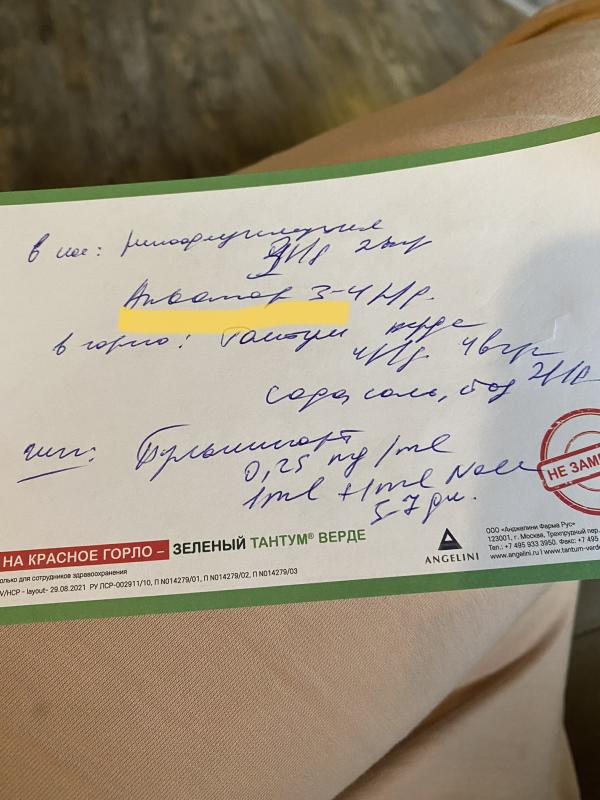 в нос: ринофлуимуцил
2 впр
Аквамар 3-4 р/д.
в горло: Тантум верде
4 р/д. 4 впр
сода, соль, йод 2 р/д
инг: Пульмикорт
0,25 mg/ml
1ml + 1ml NaCl
5-7 дн.
НЕ ЗАМ
НА КРАСНОЕ ГОРЛО –
ЗЕЛЕНЫЙ ТАНТУМ® ВЕРДЕ
олько для сотрудников здравоохранения
V/HCP - layout- 29.08.2021 РУ ЛСР-002911/10, П N014279/01, П N014279/02, П N014279/03
ANGELINI
ООО «Анджелини Фарма Рус»
123001, г. Москва, Трехпрудный пер.
Тел.: +7 495 933 3950. Факс: +7 495
www.angelini.ru | www.tantum-verde